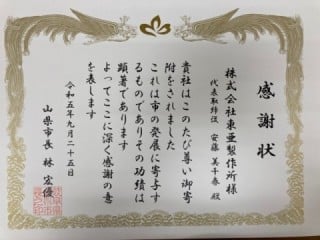 感謝状
株式会社東亜製作所様
代表取締役 安藤美千春殿
貴社はこのたび尊い御寄
附をされました
これは市の発展に寄与す
るものでありその功績は
顕著であります
よってここに深く感謝の意
を表します
令和五年九月二十五日
山県市長 林宏優